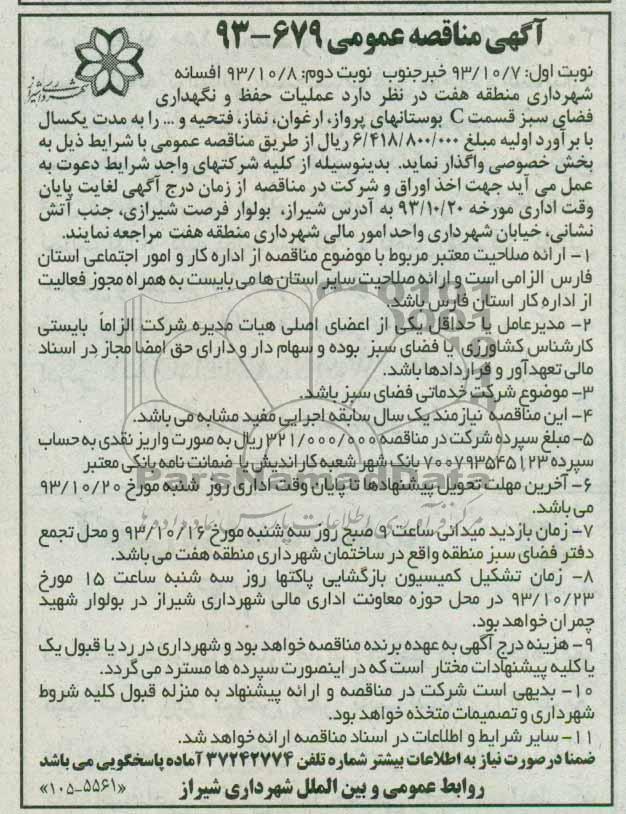 آگهی مناقصه عمومی ۶۷۹-۹۳
نوبت اول: ۹۳/۱۰/۷ خبر جنوب نوبت دوم: ۹۳/۱۰/۸ افسانه
شهرداری منطقه هفت در نظر دارد عملیات حفظ و نگهداری
فضای سبز قسمت C بوستانهای پرواز، ارغوان، نماز، فتحیه و ... را به مدت یکسال
با برآورد اولیه مبلغ ۶/۴۱۸/۸۰۰/۰۰۰ ریال از طریق مناقصه عمومی با شرایط ذیل به
بخش خصوصی واگذار نماید. بدینوسیله از کلیه شرکتهای واجد شرایط دعوت به
عمل می آید جهت اخذ اوراق و شرکت در مناقصه از زمان درج آگهی لغایت پایان
وقت اداری مورخه ۹۳/۱۰/۲۰ به آدرس شیراز، بولوار فرصت شیرازی، جنب آتش
نشانی، خیابان شهرداری واحد امور مالی شهرداری منطقه هفت مراجعه نمایند.
۱- ارائه صلاحیت معتبر مربوط با موضوع مناقصه از اداره کار و امور اجتماعی استان
فارس الزامی است و ارائه صلاحیت سایر استان ها می بایست به همراه مجوز فعالیت
از اداره کار استان فارس باشد.
۲- مدیرعامل یا حداقل یکی از اعضای اصلی هیات مدیره شرکت الزاماً بایستی
کارشناس کشاورزی یا فضای سبز بوده و سهام دار و دارای حق امضا مجاز در اسناد
مالی تعهدآور و قراردادها باشد.
۳- موضوع شرکت خدماتی فضای سبز باشد.
۴- این مناقصه نیازمند یک سال سابقه اجرایی مفید مشابه می باشد.
۵- مبلغ سپرده شرکت در مناقصه ۳۲۱/۰۰۰/۰۰۰ ریال به صورت واریز نقدی به حساب
سپرده ۷۰۰۷۹۳۵۴۵۱۲۳ بانک شهر شعبه کاراندیش یا ضمانت نامه بانکی معتبر
۶- آخرین مهلت تحویل پیشنهادها تا پایان وقت اداری روز شنبه مورخ ۹۳/۱۰/۲۰
می باشد.
۷- زمان بازدید میدانی ساعت ۹ صبح روز سه شنبه مورخ ۹۳/۱۰/۱۶ و محل تجمع
دفتر فضای سبز منطقه واقع در ساختمان شهرداری منطقه هفت می باشد.
۸- زمان تشکیل کمیسیون بازگشایی پاکتها روز سه شنبه ساعت ۱۵ مورخ
۹۳/۱۰/۲۳ در محل حوزه معاونت اداری مالی شهرداری شیراز در بولوار شهید
چمران خواهد بود.
۹- هزینه درج آگهی به عهده برنده مناقصه خواهد بود و شهرداری در رد یا قبول یک
یا کلیه پیشنهادات مختار است که در اینصورت سپرده ها مسترد می گردد.
۱۰- بدیهی است شرکت در مناقصه و ارائه پیشنهاد به منزله قبول کلیه شروط
شهرداری و تصمیمات متخذه خواهد بود.
۱۱- سایر شرایط و اطلاعات در اسناد مناقصه ارائه خواهد شد.
ضمنا در صورت نیاز به اطلاعات بیشتر شماره تلفن ۳۷۲۴۲۷۷۴ آماده پاسخگویی می باشد
روابط عمومی و بین الملل شهرداری شیراز «۱۰۵-۵۵۶۱»
ParsNamadData